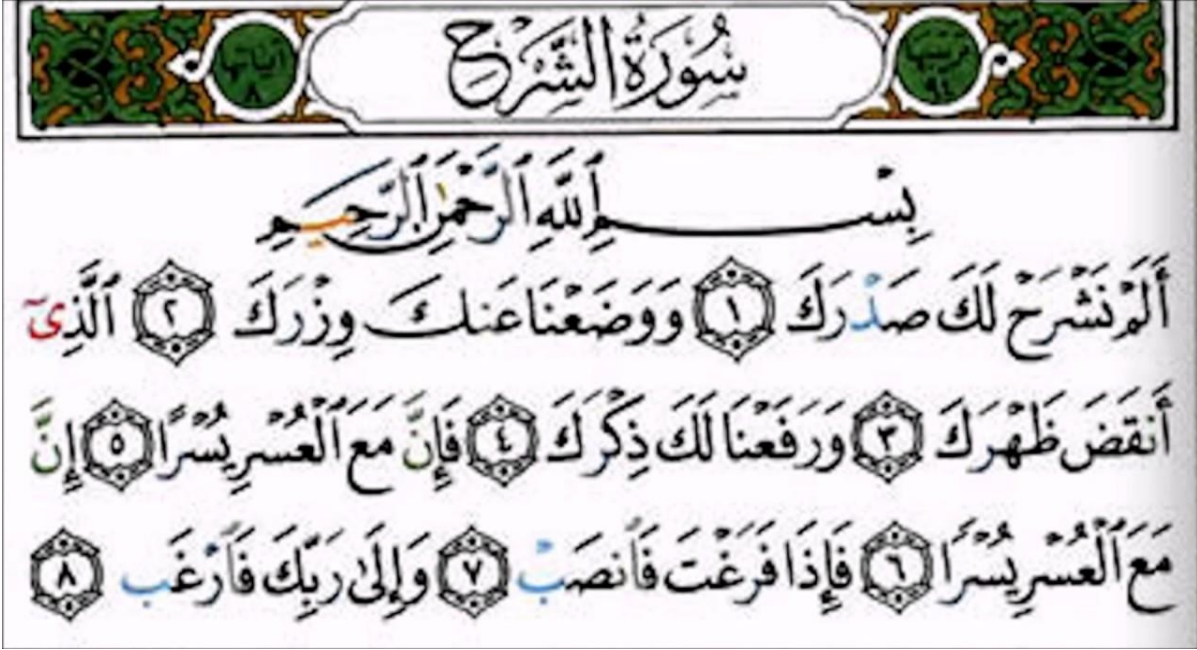 آياتها ٨
سُورَةُ الشَّرْحِ
ترتيبها ٩٤
بِسْمِ ٱللَّهِ ٱلرَّحْمَٰنِ ٱلرَّحِيمِ
أَلَمْ نَشْرَحْ لَكَ صَدْرَكَ ١ وَوَضَعْنَا عَنكَ وِزْرَكَ ٢ ٱلَّذِىٓ
أَنقَضَ ظَهْرَكَ ٣ وَرَفَعْنَا لَكَ ذِكْرَكَ ٤ فَإِنَّ مَعَ ٱلْعُسْرِ يُسْرًا ٥ إِنَّ
مَعَ ٱلْعُسْرِ يُسْرًا ٦ فَإِذَا فَرَغْتَ فَٱنصَبْ ٧ وَإِلَىٰ رَبِّكَ فَٱرْغَب ٨